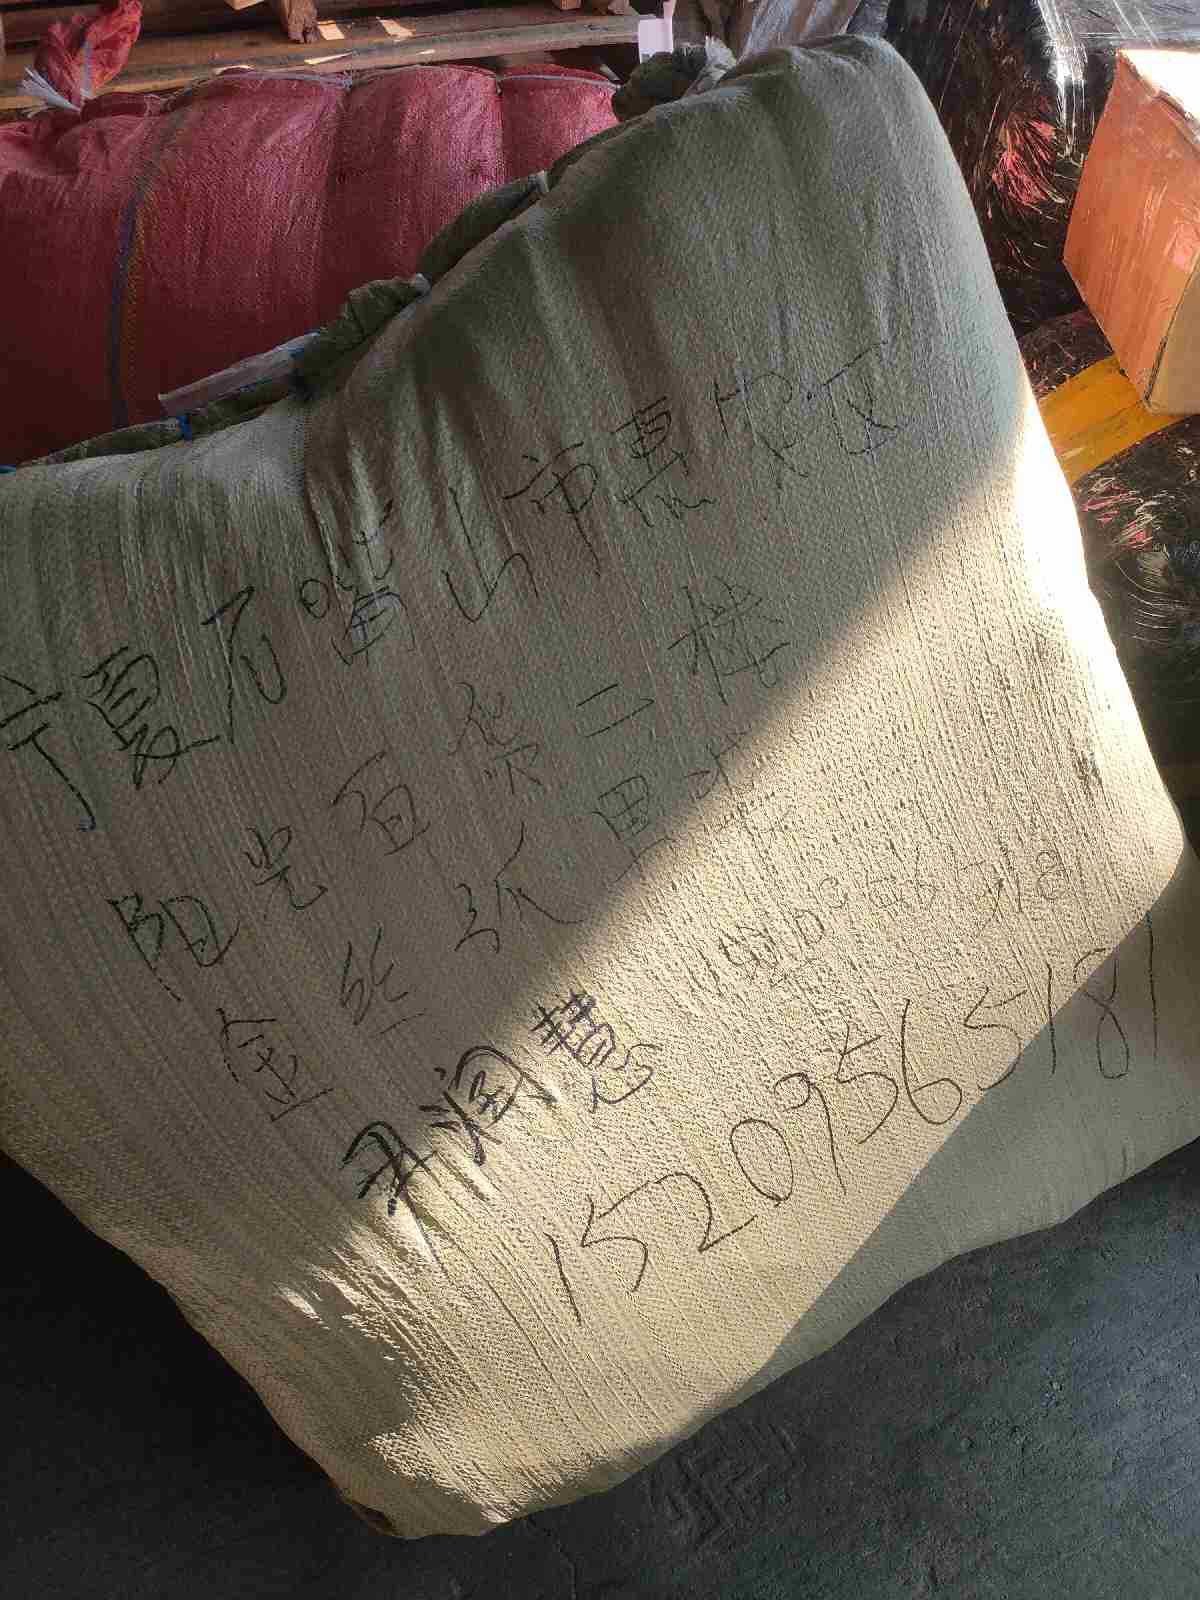 宁夏石嘴山市惠农区
阳光百货二楼
金丝狐男装
尹润慧
15209565181